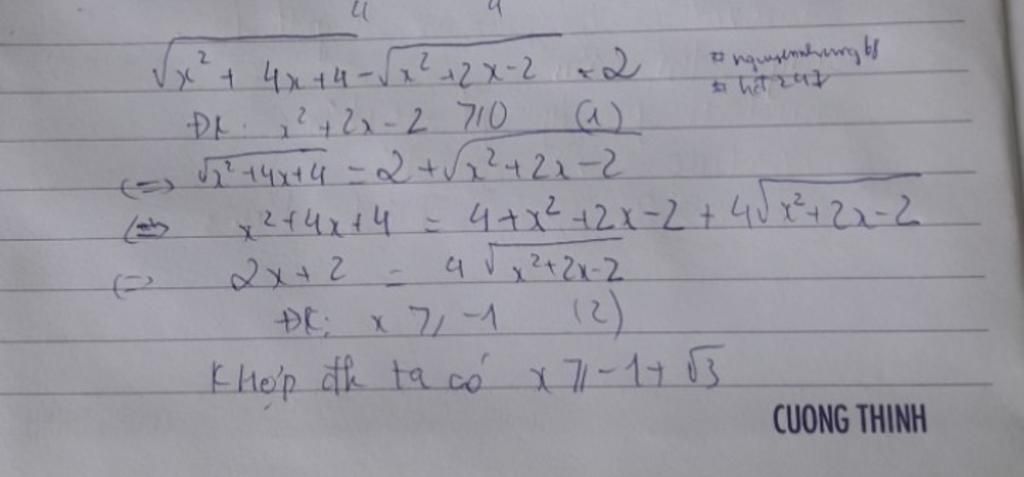 √(x² + 4x + 4) - √(x² + 2x - 2) = 2
ĐK: x² + 2x - 2 ≥ 0 (1)
<=> √(x² + 4x + 4) = 2 + √(x² + 2x - 2)
<=> x² + 4x + 4 = 4 + x² + 2x - 2 + 4√(x² + 2x - 2)
<=> 2x + 2 = 4√(x² + 2x - 2)
ĐK: x ≥ -1 (2)
K Hợp đk ta có x ≥ -1 + √3
CUONG THINH